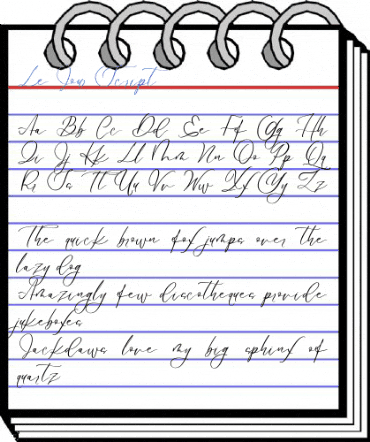 Le Jour Script
Aa Bb Cc Dd Ee Ff Gg Hh
Ii Jj Kk Ll Mm Nn Oo Pp Qq
Rr Ss Tt Uu Vv Ww Xx Yy Zz
The quick brown fox jumps over the
lazy dog
Amazingly few discotheques provide
jukeboxes
Jackdaws love my big sphinx of
quartz